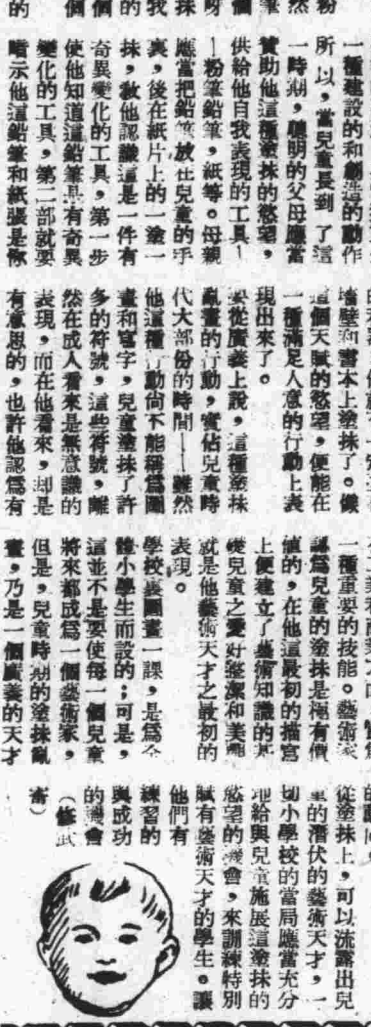 一種建設的和創造的動作
所以,當兒童長到了這
一時期,聰明的父母應當
贊助他這種塗抹的慾望,
供給他自我表現的工具—
—粉筆鉛筆,紙等。母親
應當把鉛筆放在兒童的手
裏,後在紙片上的一塗一
抹,教他認識這是一件有
奇異變化的工具,第一步
使他知道這鉛筆具有奇異
變化的工具,第二部就要
暗示他這鉛筆和紙張是你
牆壁和書本上塗抹了。儻
這個天賦的慾望,便能在
一種滿足人意的行動上表
現出來了。
要從廣義上說,這種塗抹
亂畫的行動,實佔兒童時
代大部份的時間——雖然
他這種行動尚不能稱爲圖
畫和寫字,兒童塗抹了許
多的符號,這些符號,雖
然在成人看來是無意識的
表現,而在他看來,却是
有意思的,也許他認爲有
一種重要的技能。藝術家
認爲兒童的塗抹是極有價
値的,在他這最初的描寫
上便建立了藝術知識的基
礎兒童之愛好整潔和美麗
就是他藝術天才之最初的
表現。
學校裏圖畫一課,是爲全
體小學生而設的;可是,
這並不是要使每一個兒童
將來都成爲一個藝術家,
但是,兒童時期的塗抹亂
畫,乃是一個廣義的天才
從塗抹上,可以流露出兒
童的潛伏的藝術天才,一
切小學校的當局應當充分
地給與兒童施展這塗抹的
慾望的機會,來訓練特別
賦有藝術天才的學生。讓
他們有
練習的
與成功
的機會